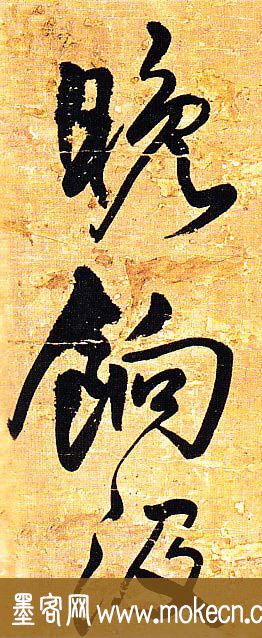 晚
餉
汲
墨客网 www.mokecn.